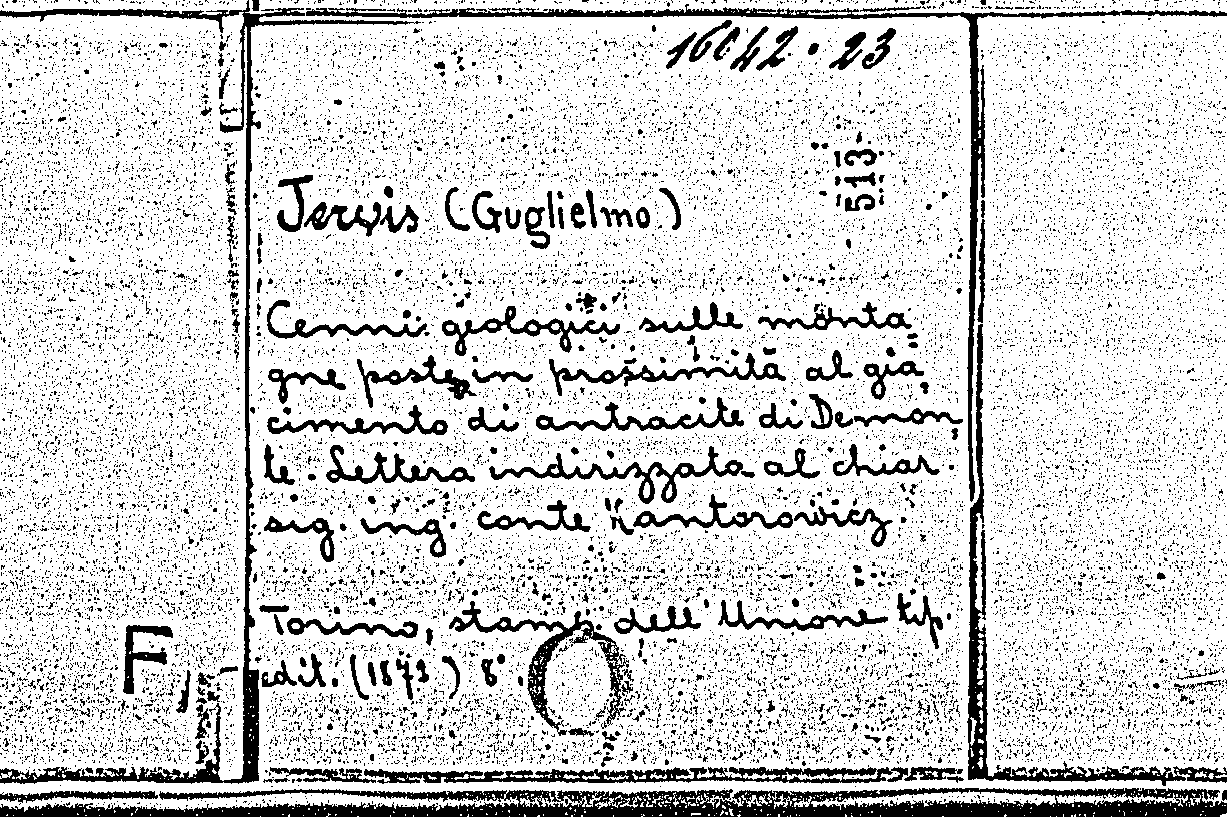 16042.23
513
Jervis (Guglielmo)
Cenni geologici sulle monta„
gne poste in prossimità al gia„
cimento di antracite di Demon„
te. Lettera indirizzata al chiar.
sig. ing. conte Kantorowicz.
Torino, stamp. dell'Unione tip.
edit. (1873) 8°.
F